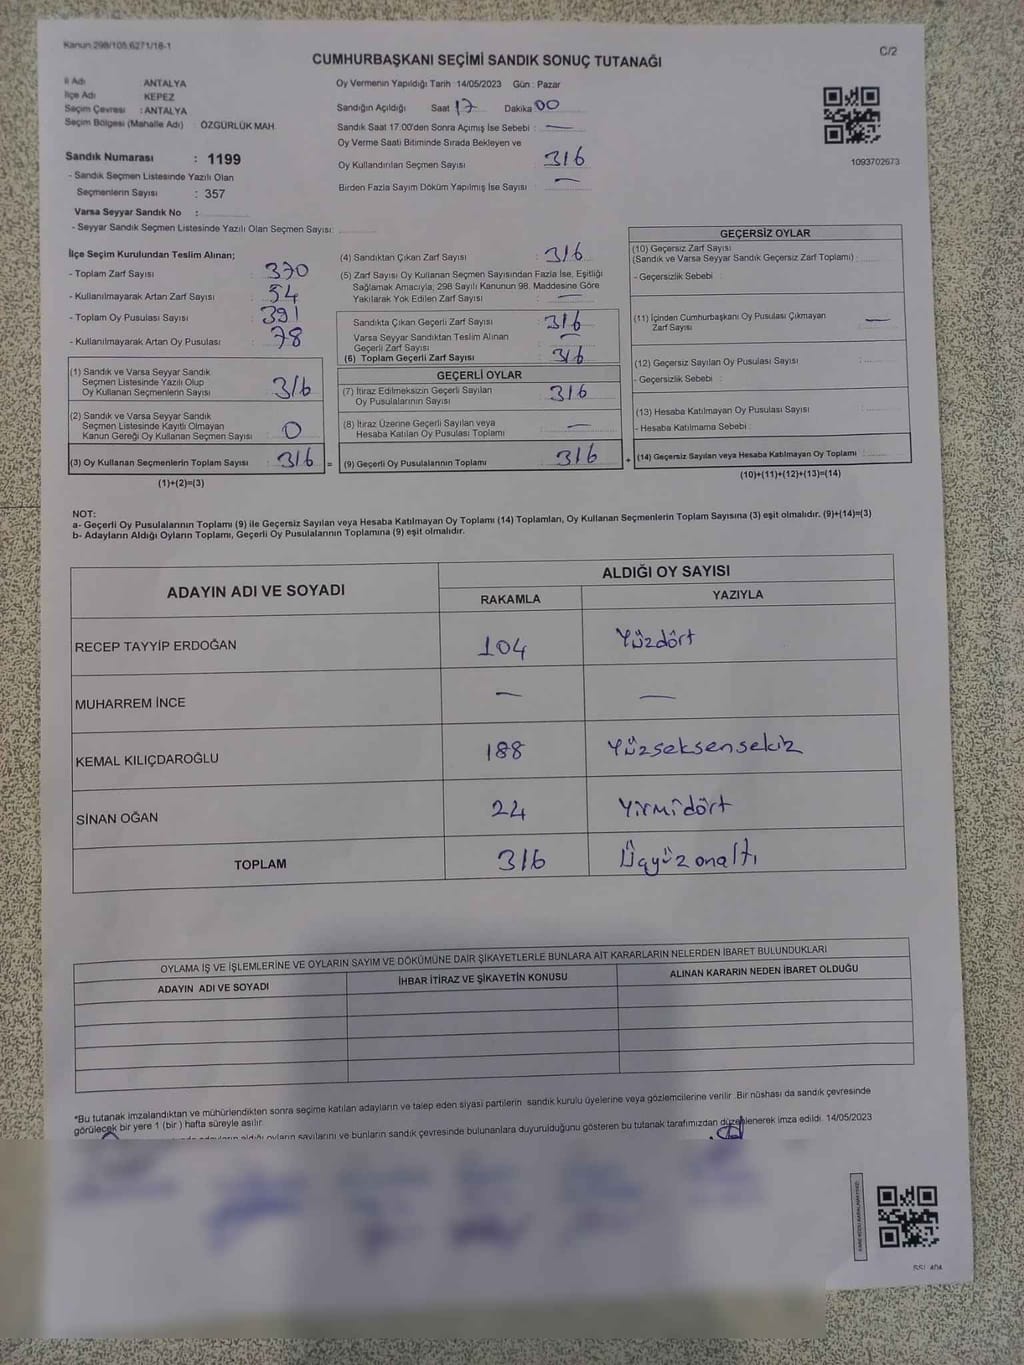 Kanun 298/105,6271/18-1
C/2
CUMHURBAŞKANI SEÇİMİ SANDIK SONUÇ TUTANAĞI
İl Adı ANTALYA
İlçe Adı KEPEZ
Seçim Çevresi : ANTALYA
Seçim Bölgesi (Mahalle Adı) ÖZGÜRLÜK MAH.
Sandık Numarası : 1199
- Sandık Seçmen Listesinde Yazılı Olan
Seçmenlerin Sayısı : 357
Varsa Seyyar Sandık No :
- Seyyar Sandık Seçmen Listesinde Yazılı Olan Seçmen Sayısı:
Oy Vermenin Yapıldığı Tarih 14/05/2023 Gün : Pazar
Sandığın Açıldığı Saat 17 Dakika 00
Sandık Saat 17:00'den Sonra Açımış İse Sebebi : —
Oy Verme Saati Bitiminde Sırada Bekleyen ve
Oy Kullandırılan Seçmen Sayısı 316
Birden Fazla Sayım Döküm Yapılmış İse Sayısı : —
1093702673
İlçe Seçim Kurulundan Teslim Alınan;
- Toplam Zarf Sayısı : 370
- Kullanılmayarak Artan Zarf Sayısı : 54
- Toplam Oy Pusulası Sayısı : 391
- Kullanılmayarak Artan Oy Pusulası : 78
(1) Sandık ve Varsa Seyyar Sandık
Seçmen Listesinde Yazılı Olup
Oy Kullanan Seçmenlerin Sayısı : 316
(2) Sandık ve Varsa Seyyar Sandık
Seçmen Listesinde Kayıtlı Olmayan
Kanun Gereği Oy Kullanan Seçmen Sayısı : 0
(3) Oy Kullanan Seçmenlerin Toplam Sayısı : 316
(1)+(2)=(3)
=
(4) Sandıktan Çıkan Zarf Sayısı : 316
(5) Zarf Sayısı Oy Kullanan Seçmen Sayısından Fazla İse, Eşitliği
Sağlamak Amacıyla; 298 Sayılı Kanunun 98. Maddesine Göre
Yakılarak Yok Edilen Zarf Sayısı : —
Sandıkta Çıkan Geçerli Zarf Sayısı : 316
Varsa Seyyar Sandıktan Teslim Alınan
Geçerli Zarf Sayısı : —
(6) Toplam Geçerli Zarf Sayısı : 316
GEÇERLİ OYLAR
(7) İtiraz Edilmeksizin Geçerli Sayılan
Oy Pusulalarının Sayısı : 316
(8) İtiraz Üzerine Geçerli Sayılan veya
Hesaba Katılan Oy Pusulası Toplamı : —
(9) Geçerli Oy Pusulalarının Toplamı : 316
+
GEÇERSİZ OYLAR
(10) Geçersiz Zarf Sayısı
(Sandık ve Varsa Seyyar Sandık Geçersiz Zarf Toplamı) :
- Geçersizlik Sebebi :
(11) İçinden Cumhurbaşkanı Oy Pusulası Çıkmayan
Zarf Sayısı : —
(12) Geçersiz Sayılan Oy Pusulası Sayısı :
- Geçersizlik Sebebi :
(13) Hesaba Katılmayan Oy Pusulası Sayısı :
- Hesaba Katılmama Sebebi :
(14) Geçersiz Sayılan veya Hesaba Katılmayan Oy Toplamı :
(10)+(11)+(12)+(13)=(14)
NOT:
a- Geçerli Oy Pusulalarının Toplamı (9) ile Geçersiz Sayılan veya Hesaba Katılmayan Oy Toplamı (14) Toplamları, Oy Kullanan Seçmenlerin Toplam Sayısına (3) eşit olmalıdır. (9)+(14)=(3)
b- Adayların Aldığı Oyların Toplamı, Geçerli Oy Pusulalarının Toplamına (9) eşit olmalıdır.
ADAYIN ADI VE SOYADI
ALDIĞI OY SAYISI
RAKAMLA YAZIYLA
RECEP TAYYİP ERDOĞAN 104 Yüzdört
MUHARREM İNCE — —
KEMAL KILIÇDAROĞLU 188 Yüzseksensekiz
SİNAN OĞAN 24 Yirmidört
TOPLAM 316 Üçyüzonaltı
OYLAMA İŞ VE İŞLEMLERİNE VE OYLARIN SAYIM VE DÖKÜMÜNE DAİR ŞİKAYETLERLE BUNLARA AİT KARARLARIN NELERDEN İBARET BULUNDUKLARI
ADAYIN ADI VE SOYADI İHBAR İTİRAZ VE ŞİKAYETİN KONUSU ALINAN KARARIN NEDEN İBARET OLDUĞU
*Bu tutanak imzalandıktan ve mühürlendikten sonra seçime katılan adayların ve talep eden siyasi partilerin sandık kurulu üyelerine veya gözlemcilerine verilir. Bir nüshası da sandık çevresinde
görülecek bir yere 1 (bir) hafta süreyle asılır.
aldığı oyların sayılarını ve bunların sandık çevresinde bulunanlara duyurulduğunu gösteren bu tutanak tarafımızdan düzenlenerek imza edildi. 14/05/2023